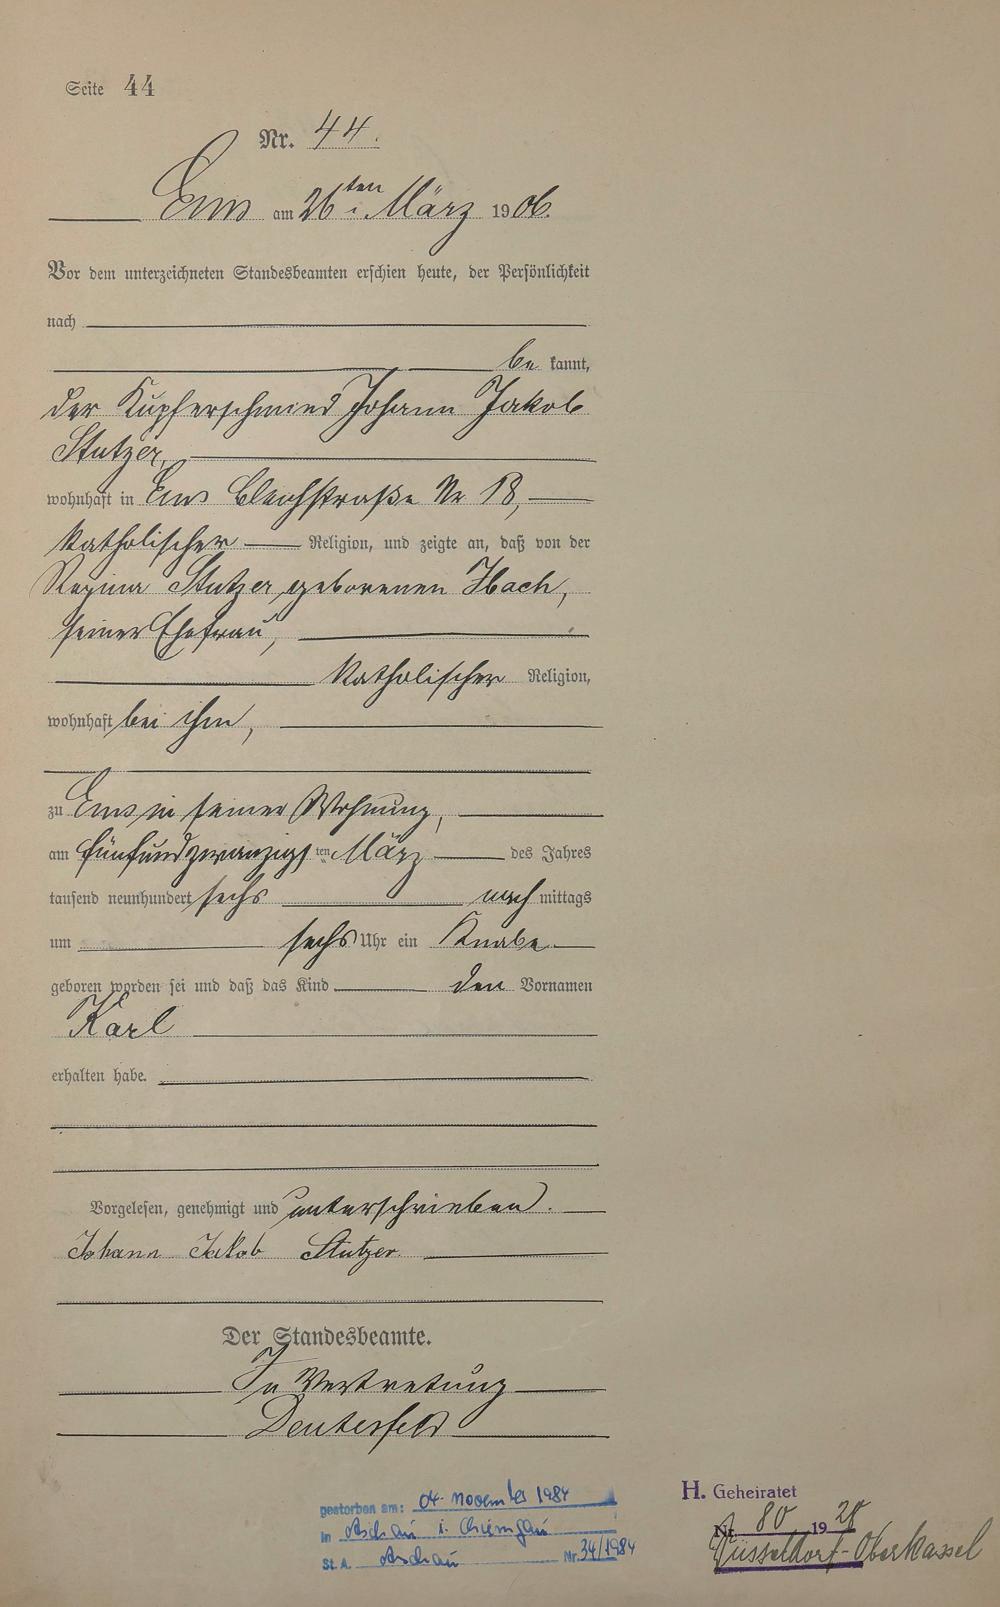 Seite 44
Nr. 44.
Ems am 26ten März 1906.
Vor dem unterzeichneten Standesbeamten erschien heute, der Persönlichkeit
nach
be kannt,
der Kupferschmied Johann Jakob
Stutzer,
wohnhaft in Ems Bleichstraße Nr 18,
katholischer Religion, und zeigte an, daß von der
Regina Stutzer geborenen Ibach,
seiner Ehefrau,
katholischer Religion,
wohnhaft bei ihm,
zu Ems in seiner Wohnung,
am fünfundzwanzigsten März des Jahres
tausend neunhundert sechs nachmittags
um sechs Uhr ein Knabe
geboren worden sei und daß das Kind den Vornamen
Karl
erhalten habe.
Vorgelesen, genehmigt und unterschrieben.
Johann Jakob Stutzer.
Der Standesbeamte.
In Vertretung
gestorben am: 04. november 1984
in Aschau i. Chiemgau
St. A. Aschau Nr. 34/1984
H. Geheiratet
Nr. 80 1928
Düsseldorf-Oberkassel